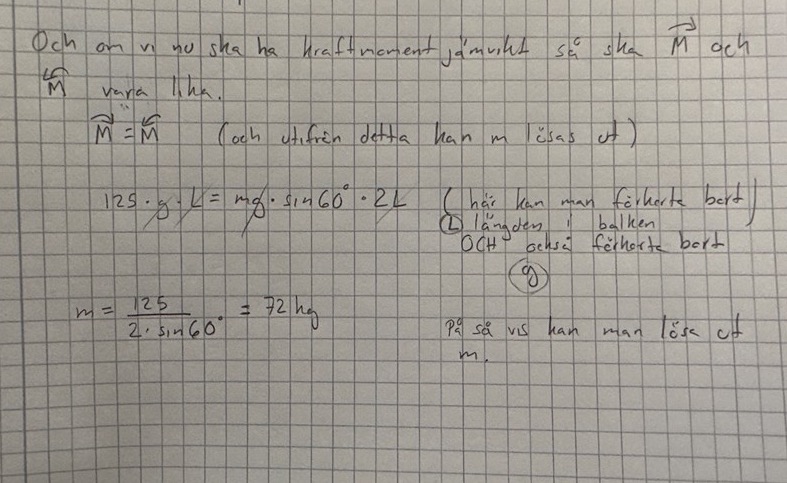 Och om vi nu ska ha kraftmoment jämvikt så ska M⃗ och
M⃖ vara lika.
M⃗ = M⃖ (och utifrån detta kan m lösas ut)
125 · g · L = mg · sin 60° · 2L (här kan man förkorta bort)
L längden i balken
OCH också förkorta bort
g
m = 125 / 2 · sin 60° = 72 kg
På så vis kan man lösa ut
m.